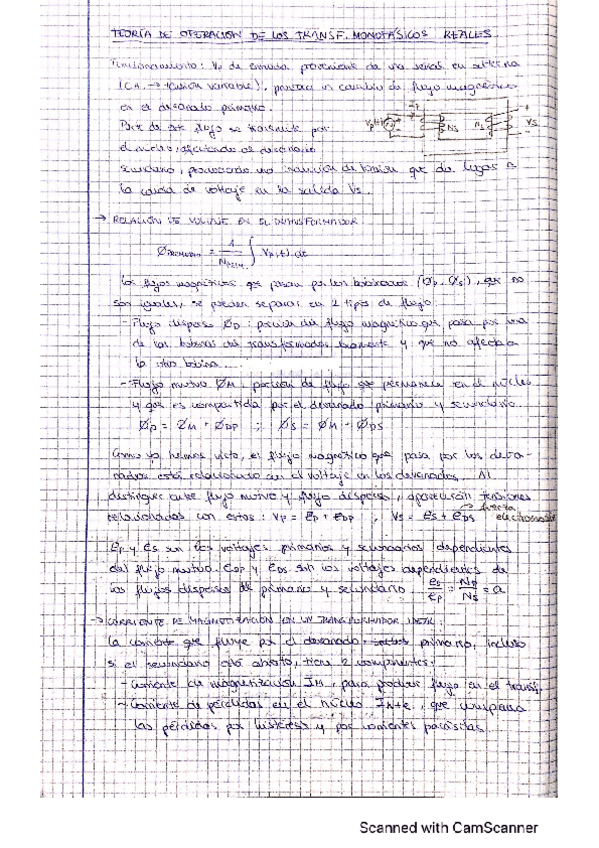 TEORÍA DE OPERACIÓN DE LOS TRANSF. MONOFÁSICOS REALES.
Funcionamiento: Vp de entrada proveniente de una señal en alterna
(CA → tensión variable), provoca un cambio de flujo magnético
en el devanado primario.
Parte de este flujo se transmite por
el núcleo, afectando al devanado
secundario, provocando una de tensión que da lugar a
la caída de voltaje en la salida Vs.
Vp(t) Ns Vs
→ RELACIÓN DE VOLTAJE EN EL TRANSFORMADOR
Ø = 1/N ∫ Vp(t) dt
Los flujos magnéticos que pasan por las bobinas (Øp, Øs), que no
son iguales, se pueden separar en 2 tipos de flujo:
- Flujo disperso ØD: porción del flujo magnético que pasa por una
de las bobinas del transformador y que no afecta a
la otra bobina.
- Flujo mutuo ØM: porción de flujo que permanece en el núcleo
y que es compartida por el devanado primario y secundario.
Øp = ØM + ØDP ;; Øs = ØM - ØDS
Como ya hemos visto, el flujo magnético que pasa por los deva-
nados está relacionado con el voltaje en los devanados. Al
distinguir entre flujo mutuo y flujo disperso, aparecerán tensiones
relacionadas con estos: Vp = ep + eDP ; Vs = es + eDS
→ fuerza
ep y es son los voltajes primarios y secundarios dependientes
del flujo mutuo. eDP y eDS son los voltajes dependientes de
los flujos dispersos de primario y secundario. es/ep = Np/Ns = a
→ CORRIENTE DE MAGNETIZACIÓN EN UN TRANSFORMADOR REAL:
La corriente que fluye por el devanado primario, incluso
si el secundario está abierto, tiene 2 componentes:
- Corriente de magnetización IM, para producir flujo en el transf.
- Corriente de pérdidas en el núcleo Ih+e, que compensa
las pérdidas por histéresis y por corrientes parásitas.
Scanned with CamScanner